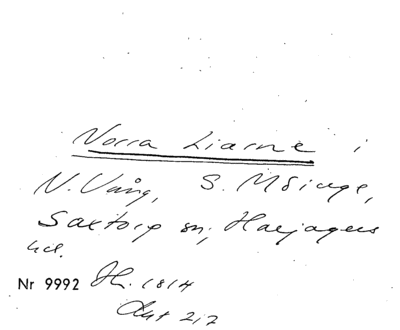 Norra Liarne i
N. Vång, S. Möinge,
Saxtorp sn, Harjagers
hd.
Nr 9992 Jh. 1814
Akt 217